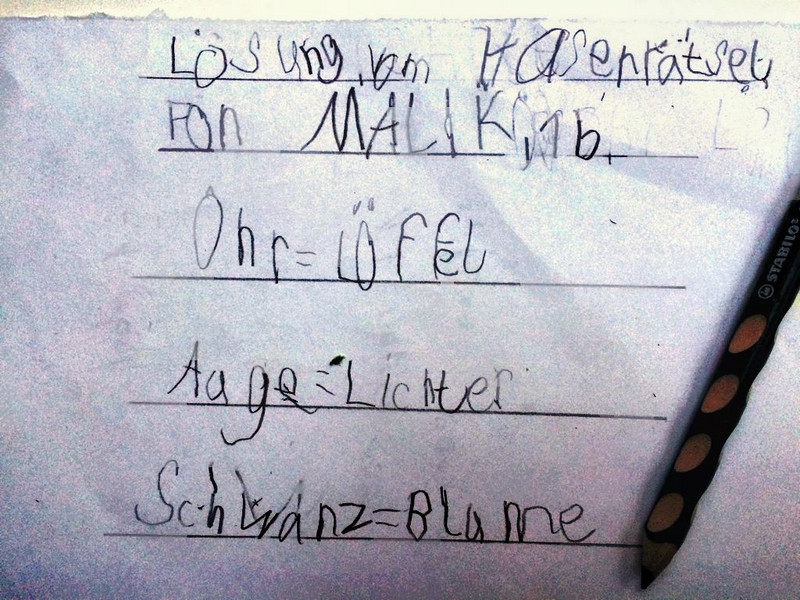 Lösung vom Hasenrätsel
FON MALIK, 1b.
Ohr=LÖFEL
Auge=Lichter
Schwanz=Blume
STABILO